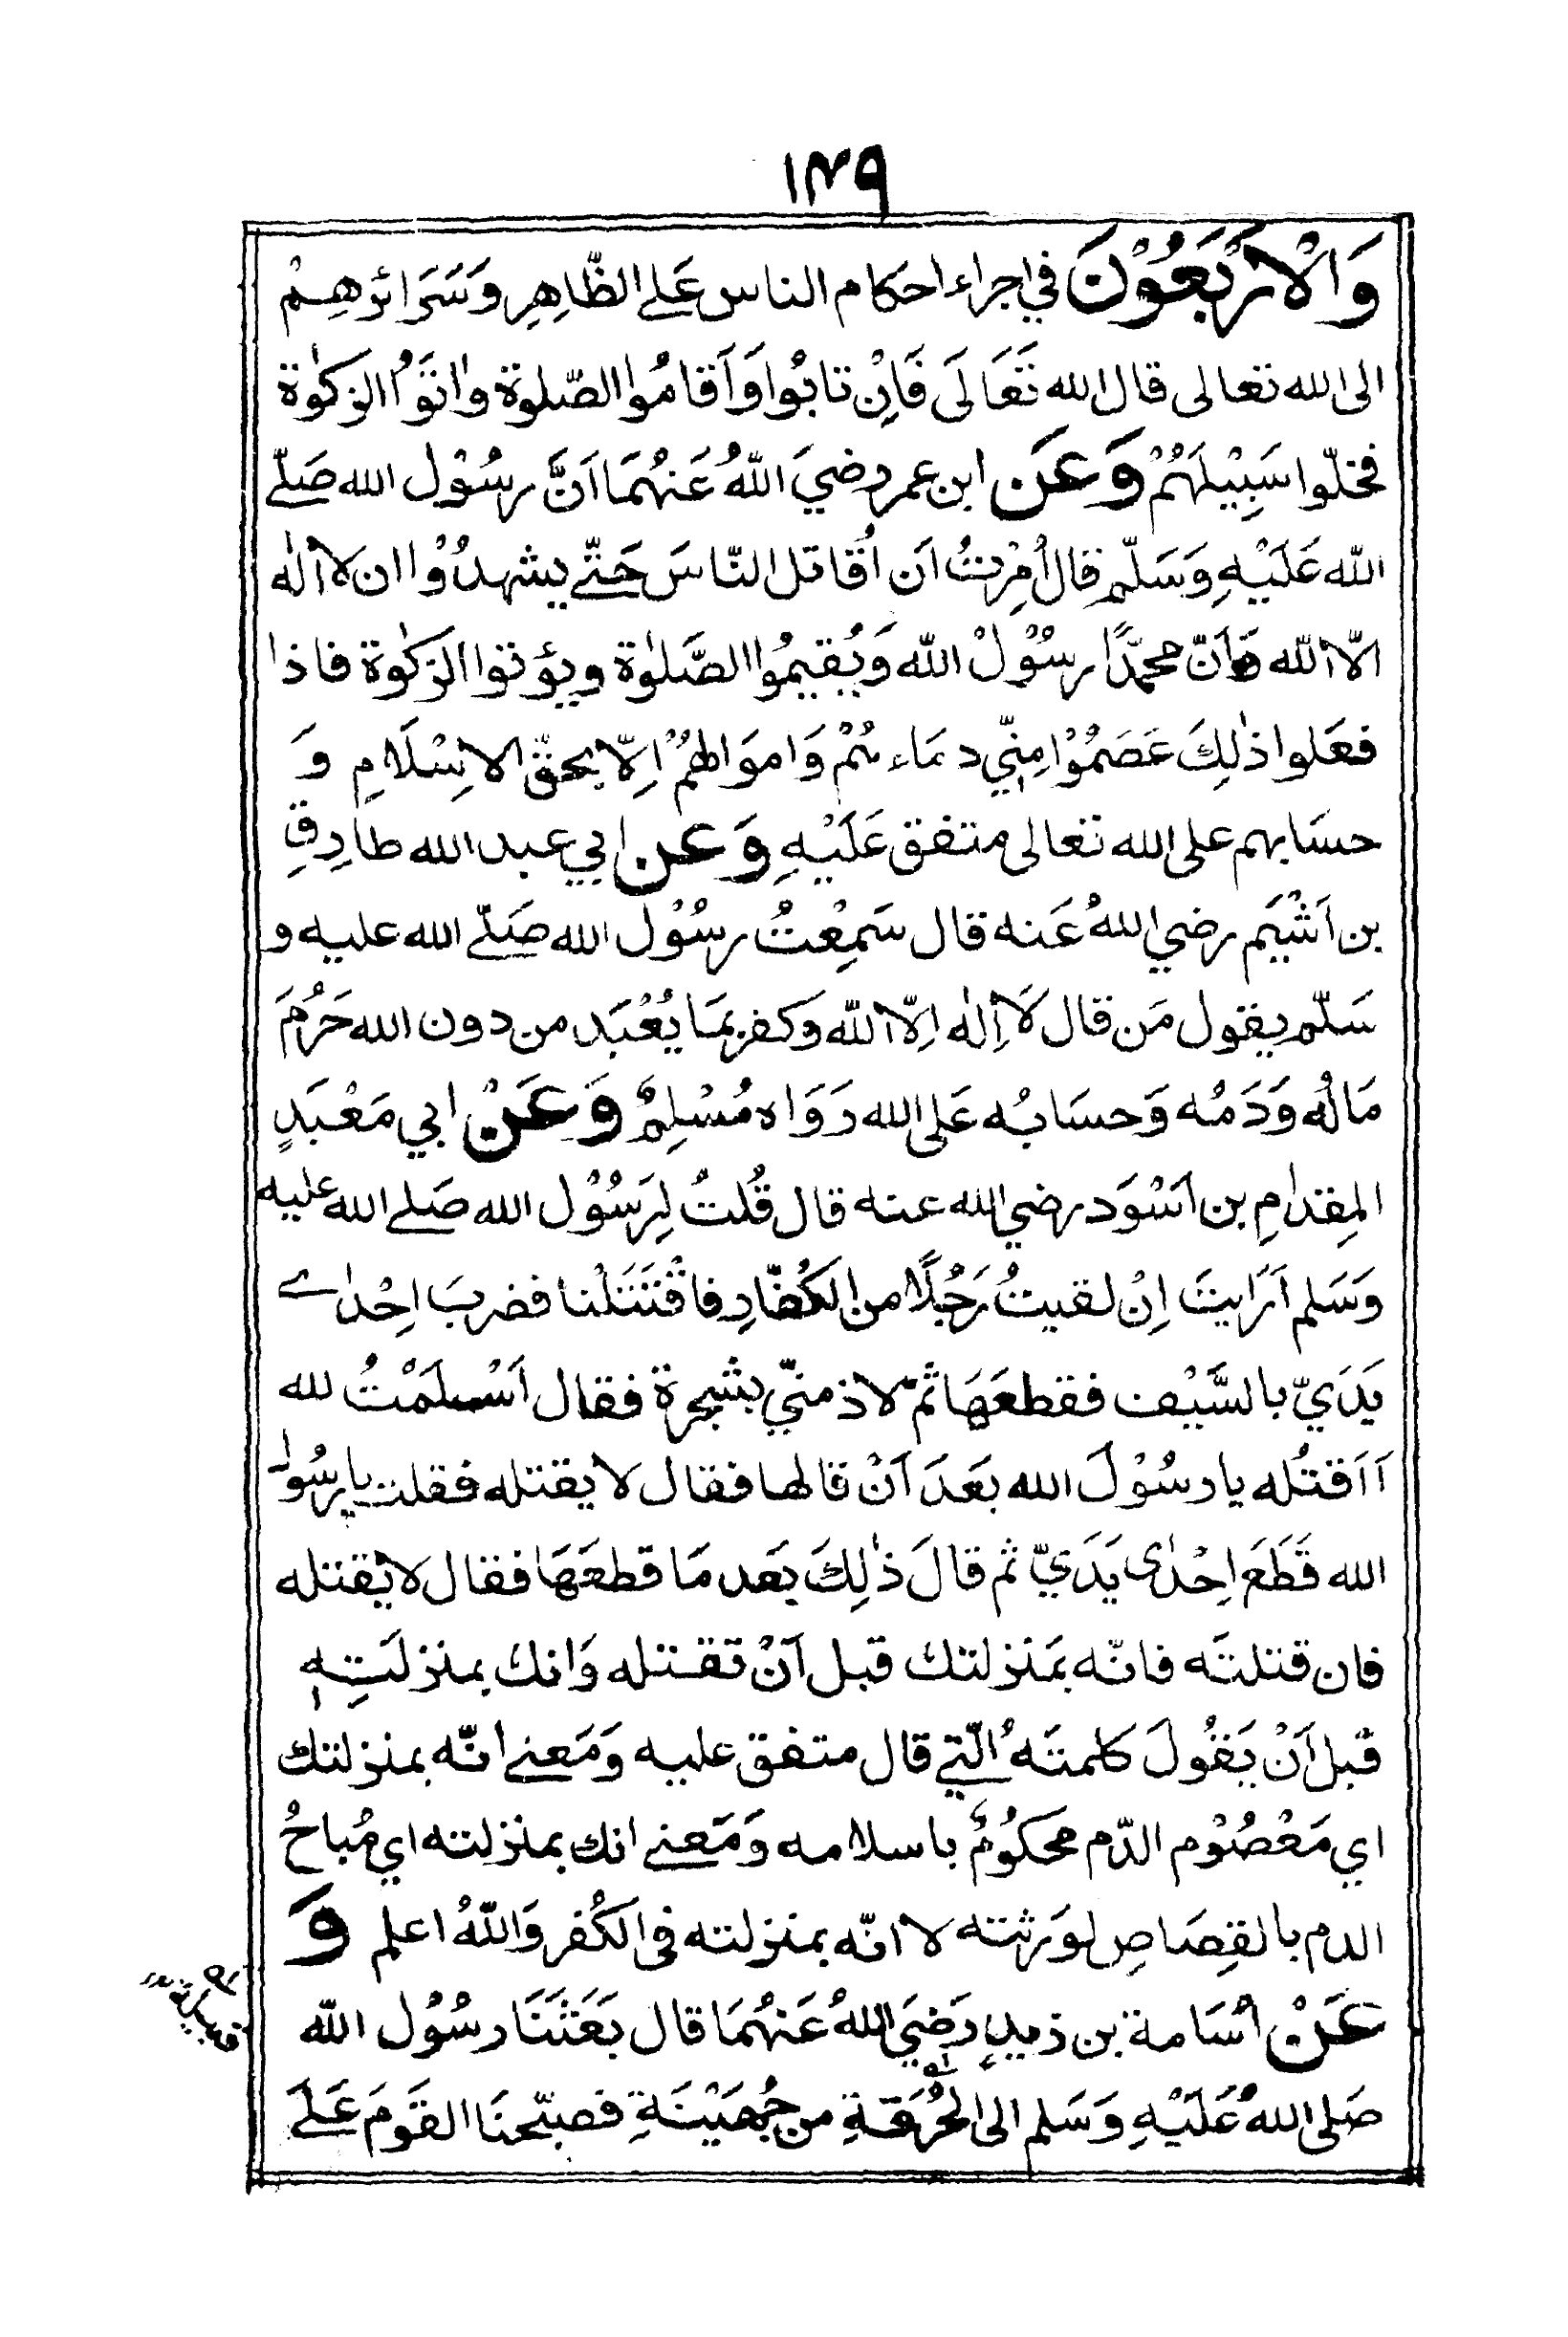 ١٤٩
وَالْاَرْبَعُوْنَ في اجراء احكام الناس عَلے الظّاهِرِ وَسَرَائرهِمْ
الى الله تعالى قال الله تَعَالَى فَاِنْ تابُوا وَاَقامُوا الصّلوة واٰتَوُا الزكوٰة
فخلّوا سَبِيْلَهُمْ وَعَن ابن عمر رضيَ اللّهُ عَنهُمَا اَنَّ رسُوْل الله صَلّے
اللّه عَلَيْهِ وَسَلّم قال اُمِرْتُ اَن اُقاتل النّاسَ حَتّے يشهدُوْا ان لا اِلٰه
الّا اللّه وَاَنّ محمّدًا رسُوْلُ اللّه وَيُقيمُوا الصَّلوٰة ويؤتوا الزكوٰة فاذا
فعَلوا ذٰلِكَ عَصَمُوْا مِنّي دمَاءهُمْ وَاموَالهُمْ اِلّا بحقّ الاِسْلَامِ وَ
حسَابهم على الله تعالى متفق عَلَيْهِ وَعن ابي عبد الله طارِقِ
بن اَشْيَم رضي اللهُ عَنه قال سَمِعْتُ رسُوْل الله صَلّے الله عليه و
سَلّم يقول مَن قال لَا اِلٰه اِلّا اللّه وَكفر بمَا يُعْبَد من دون الله حَرُمَ
مَالُه وَدَمُه وَحسَابُه عَلى الله رَوَاه مُسْلِمٌ وَعَنْ ابي مَعْبَدٍ
المِقدامِ بن اَسْوَد رضي الله عنه قال قُلتُ لِرَسُوْل الله صَلے الله عليه
وَسَلم اَرَايتَ اِنْ لقيتُ رَجُلًا من الكُفّارِ فاقْتَتَلْنا فضربَ اِحْدٰے
يَدَيّ بالسَّيْف فقطعَهَا ثمّ لاذ منّي بشجرة فقال اَسْلَمْتُ لله
اَاَقتُله يا رسُوْلَ الله بَعَدَ اَنْ قالها فقال لا يقتله فقلت يا رسُول
الله قَطَعَ اِحْدٰى يَدَيّ ثم قالَ ذٰلِكَ بَعد مَا قطعَهَا فقال لا يقتله
فان قتلتَه فانّه بمَنزلتك قبل اَنْ تقتله وَانك بمنزلَتِهٖ
قبل اَنْ يَقُولَ كلمتَهُ الّتے قال متفق عليه وَمَعنے انّه بمنزلتك
اي مَعْصُوْم الدّم محكوُمٌ باسلامه وَمَعنے انك بمنزلته اي مُباحُ
الدم بالقِصَاصِ لوَرثته لا انّه بمنزلته فى الكُفر وَاللّهُ اعلم وَ
عَنْ اُسَامة بن زيدٍ رَضيَ اللهُ عَنهُمَا قال بَعَثَنَا رسُوْل اللّه
صَلى اللهُ عَلَيْهِ وَسَلم الى الحُرَقةِ من جُهَيْنَةِ فصبّحنَا القَومَ عَلَے